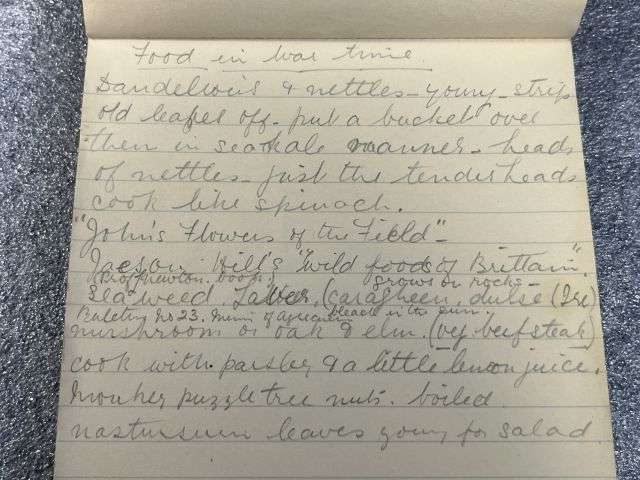 Food in War time.
Dandelions & nettles - young - strip
old leafes off - put a bucket over
them in seakale manner - heads
of nettles - just the tender heads
cook like spinach.
"John's Flowers of the Field" -
Jason Hill's "Wild foods of Brittain"
grows on rocks -
Sea weed Laver, (carasheen, dulse (Ire)
Buleting No 23. Mini of agriculture bleach in the sun.
mushroom on oak & elm. (veg. beef steak)
cook with parsley & a little lemon juice.
Monkey puzzle tree nuts. boiled
nastursum leaves young for salad